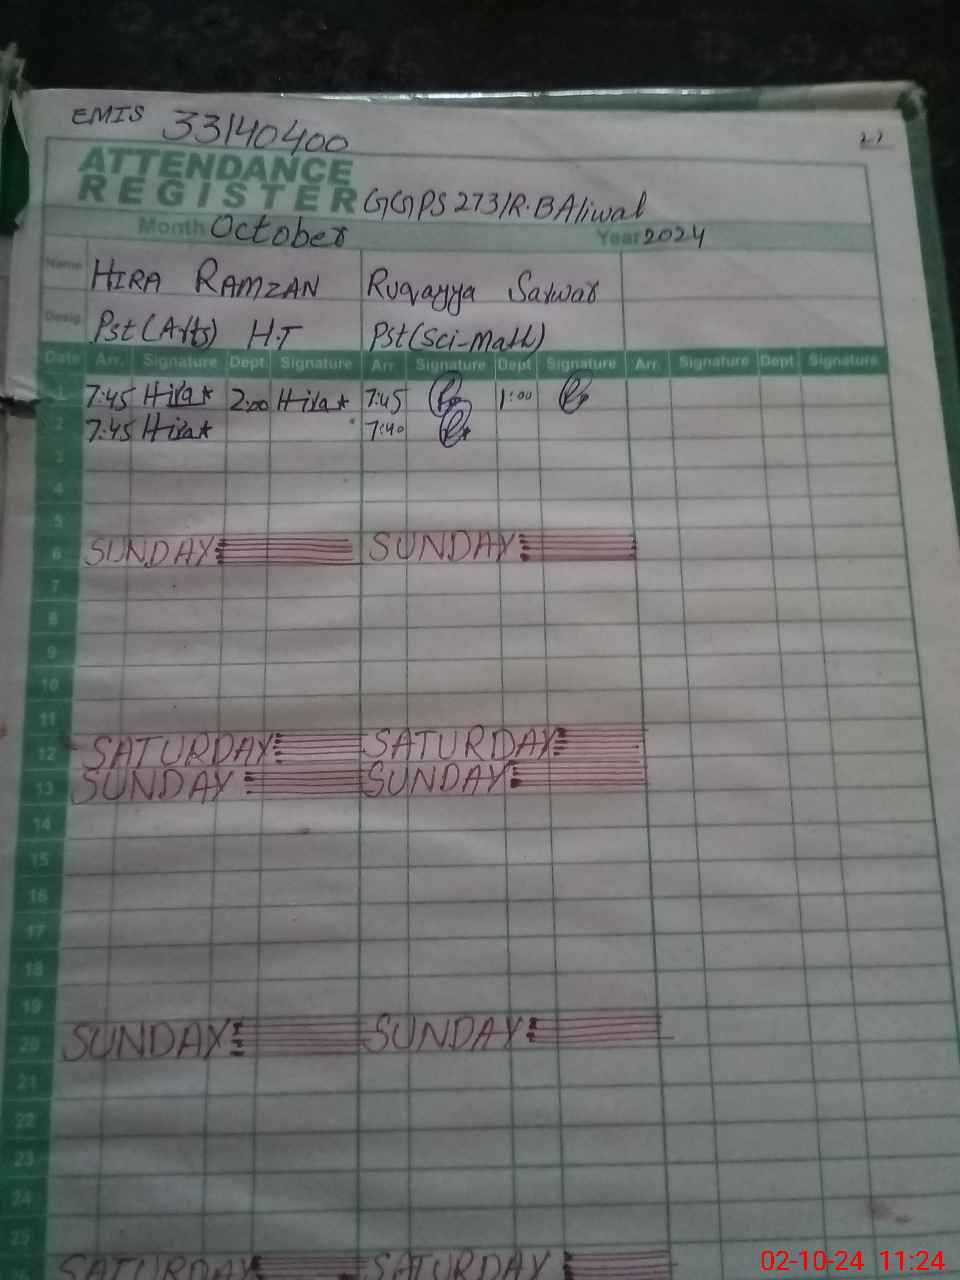 EMIS 33140400
ATTENDANCE
REGISTER GGPS 273/R.B Aliwal
Month October Year 2024
Name HIRA RAMZAN Ruqayya Sarwar
Desig. Pst (Arts) H.T Pst (Sci-Math)
Date Arr. Signature Dept Signature Arr. Signature Dept Signature Arr. Signature Dept Signature
1 7:45 Hira* 2:00 Hira* 7:45 1:00
2 7:45 Hira* 7:40
3
4
5
6 SUNDAY SUNDAY
7
8
9
10
11
12 SATURDAY SATURDAY
13 SUNDAY SUNDAY
14
15
16
17
18
19
20 SUNDAY SUNDAY
21
22
23
24
25
26 SATURDAY SATURDAY
02-10-24 11:24